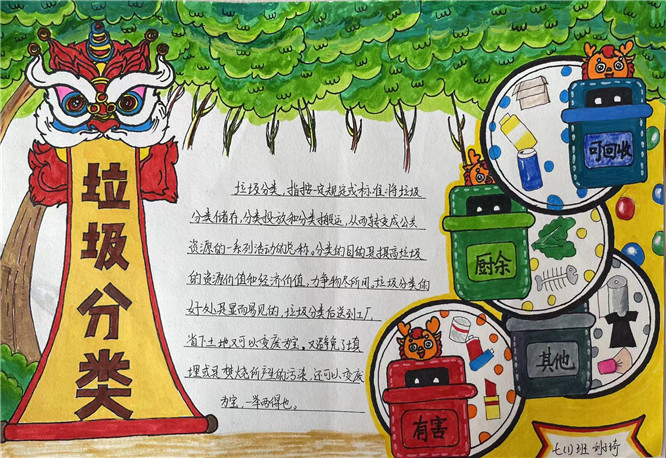 垃圾分类
垃圾分类,指按一定规定或标准将垃圾
分类储存,分类投放和分类搬运,从而转变成公共
资源的一系列活动的总称,分类的目的是提高垃圾
的资源价值和经济价值,力争物尽所用,垃圾分类的
好处是显而易见的,垃圾分类后送到工厂
省下土地又可以变废为宝。又避免了填
埋或是焚烧所产生的污染,还可以变废
为宝,一举两得也。
可回收
厨余
其他
有害
七(1)班